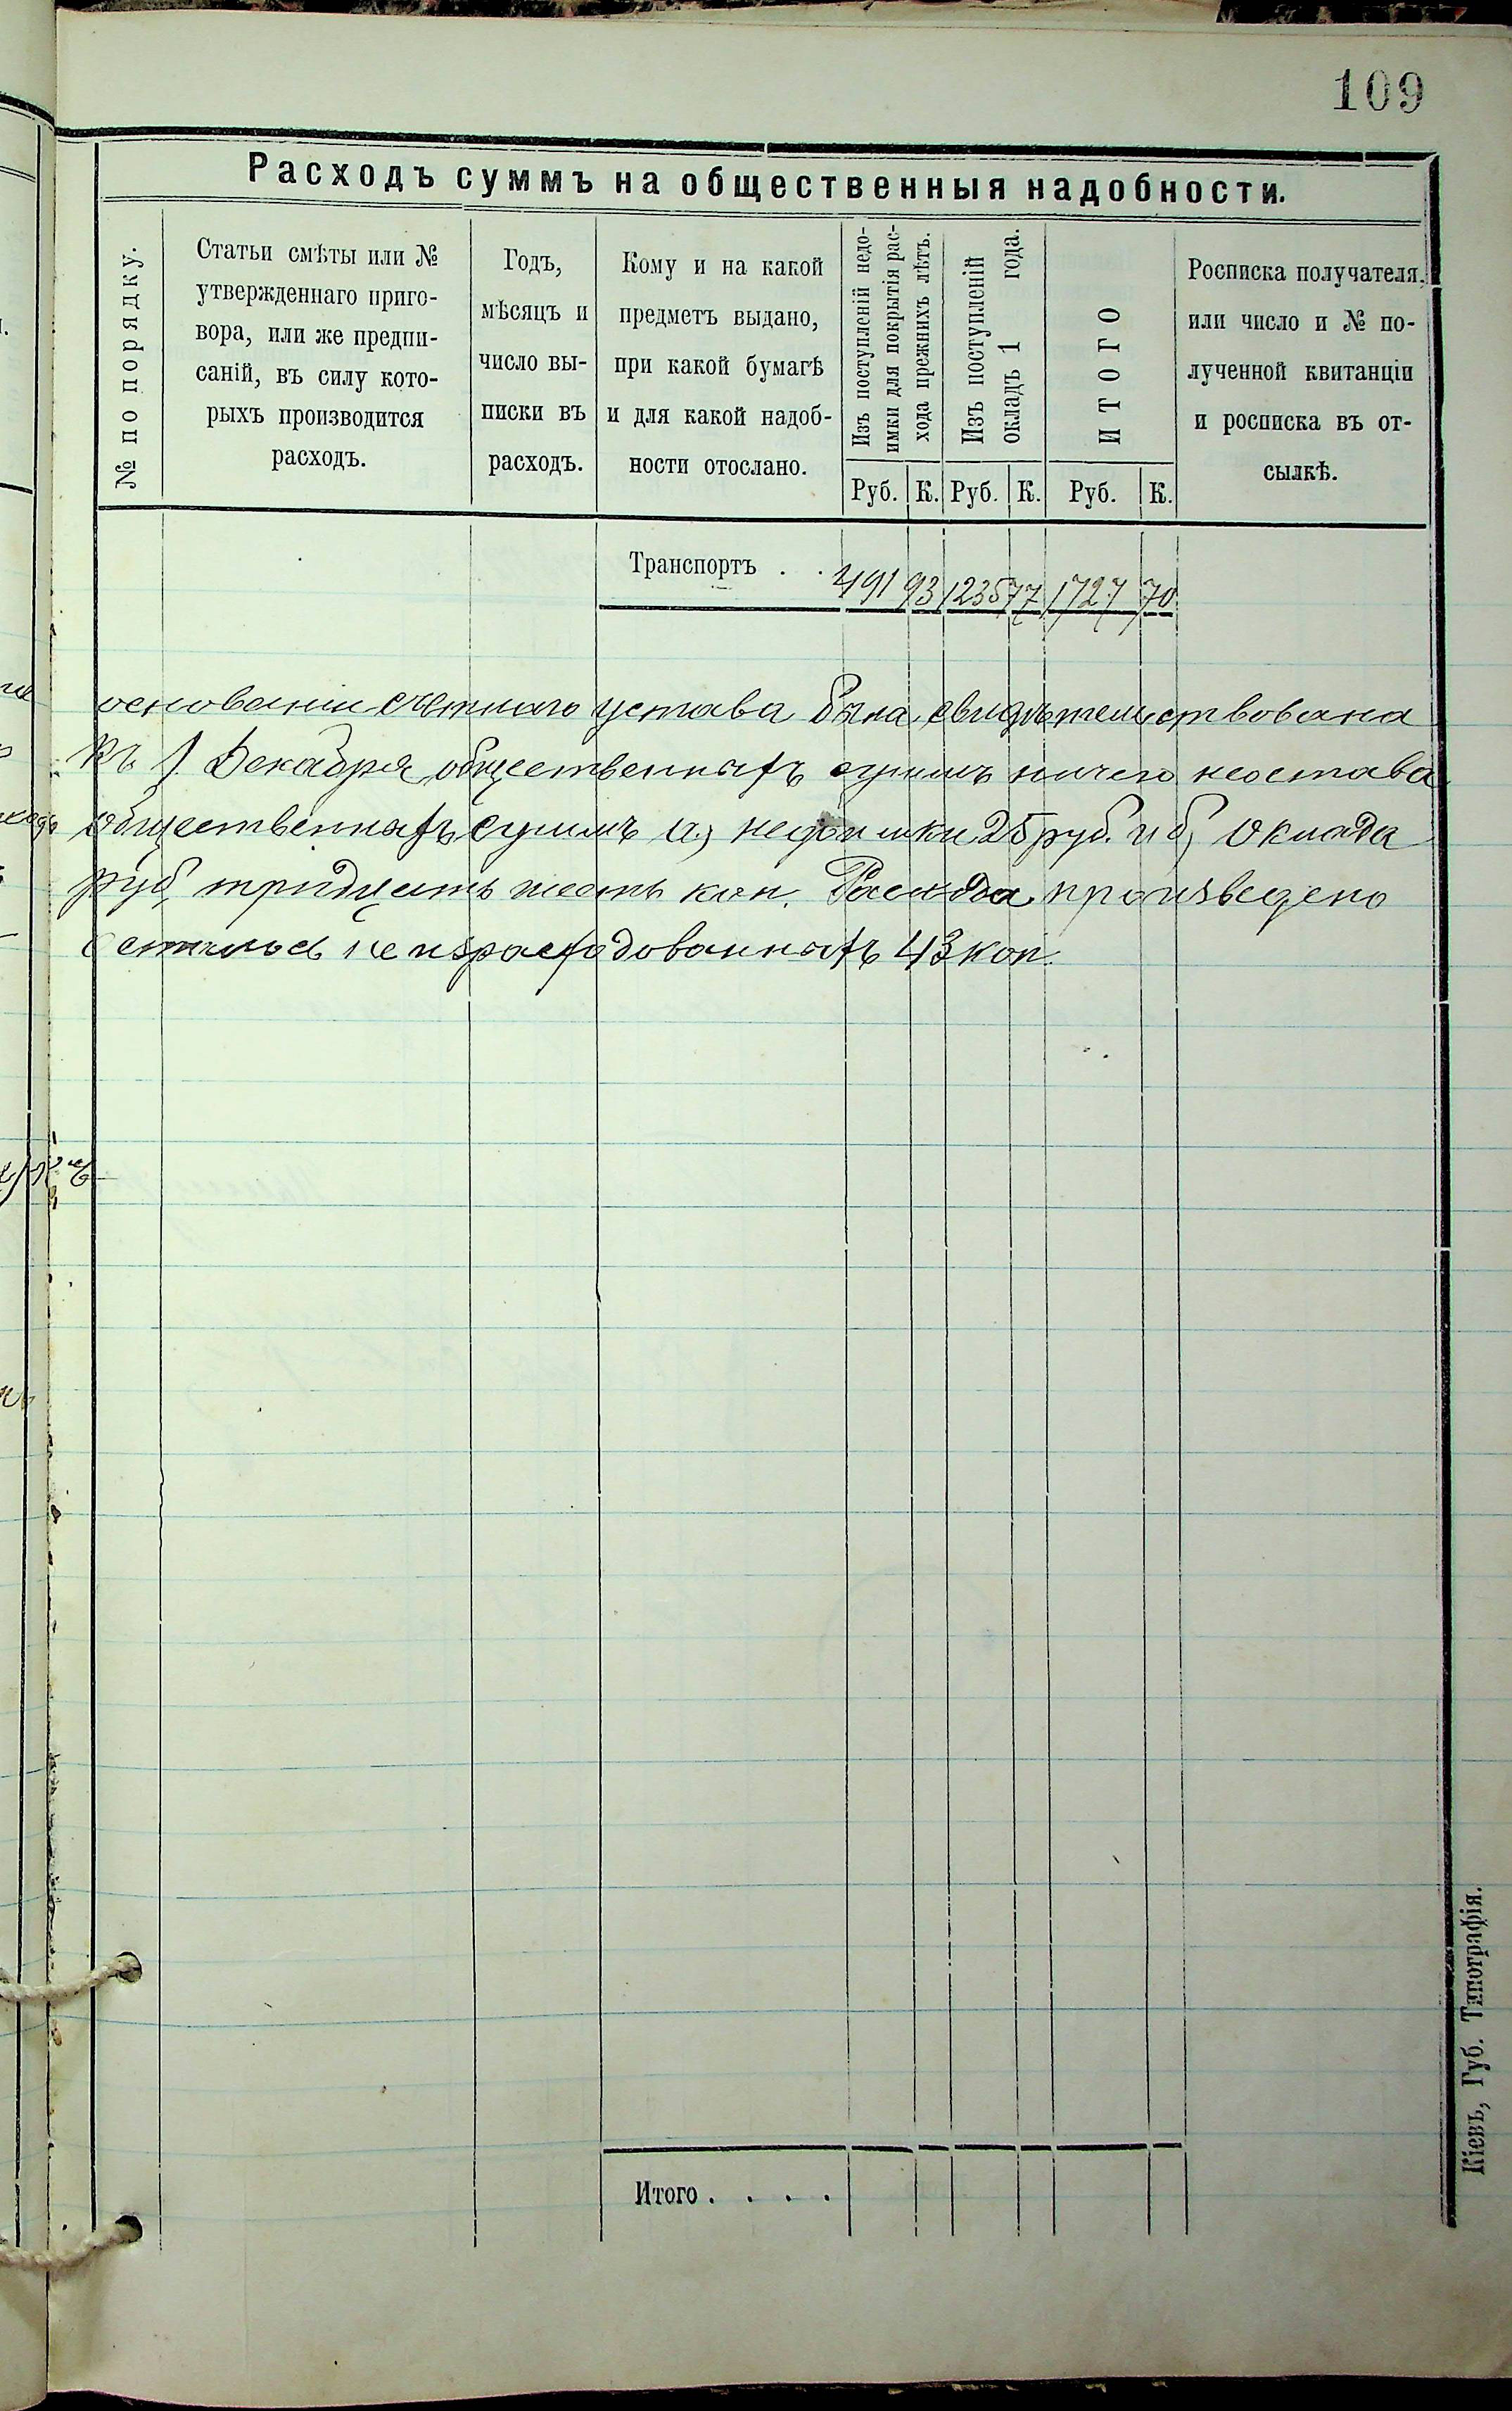 109
Расходъ суммъ на общественныя надобности.
№ по порядку.
Статьи смѣты или №
утвержденнаго приго-
вора, или же предпи-
саній, въ силу кото-
рыхъ производится
расходъ.
Годъ,
мѣсяцъ и
число вы-
писки въ
расходъ.
Кому и на какой
предметъ выдано,
при какой бумагѣ
и для какой надоб-
ности отослано.
Изъ поступленій недо-
имки для покрытія рас-
хода прежнихъ лѣтъ.
Изъ поступленій
окладъ 1 года.
ИТОГО
Росписка получателя.
или число и № по-
лученной квитанціи
и росписка въ от-
сылкѣ.
Руб. К. Руб. К. Руб. К.
Транспортъ . . 491 93 1235 77 1727 70
основаніи счетнаго устава была свидѣтельствована
къ 1 Декабря общественныхъ суммъ ничего неостава
общественныхъ суммъ а) недоимки 25 руб. и б) оклада
руб, тридцать шесть коп. Расхода произведено
осталось неизрасходованныхъ 43 коп.
Итого . . . .
Кіевъ, Губ. Типографія.